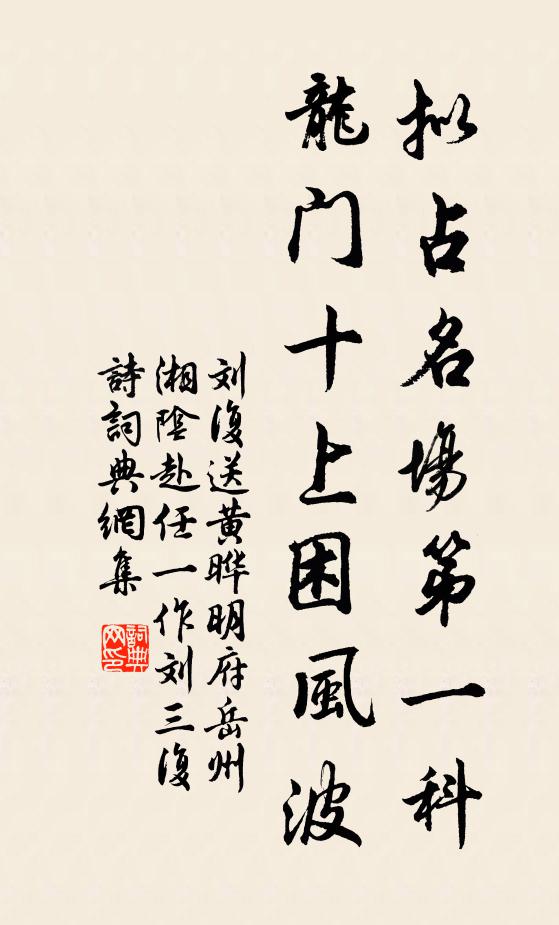 拟占名場第一科
龍门十上困風波
刘復送黄晔明府岳州
湘陰赴任一作刘三復
詩詞典網集
詞典网印